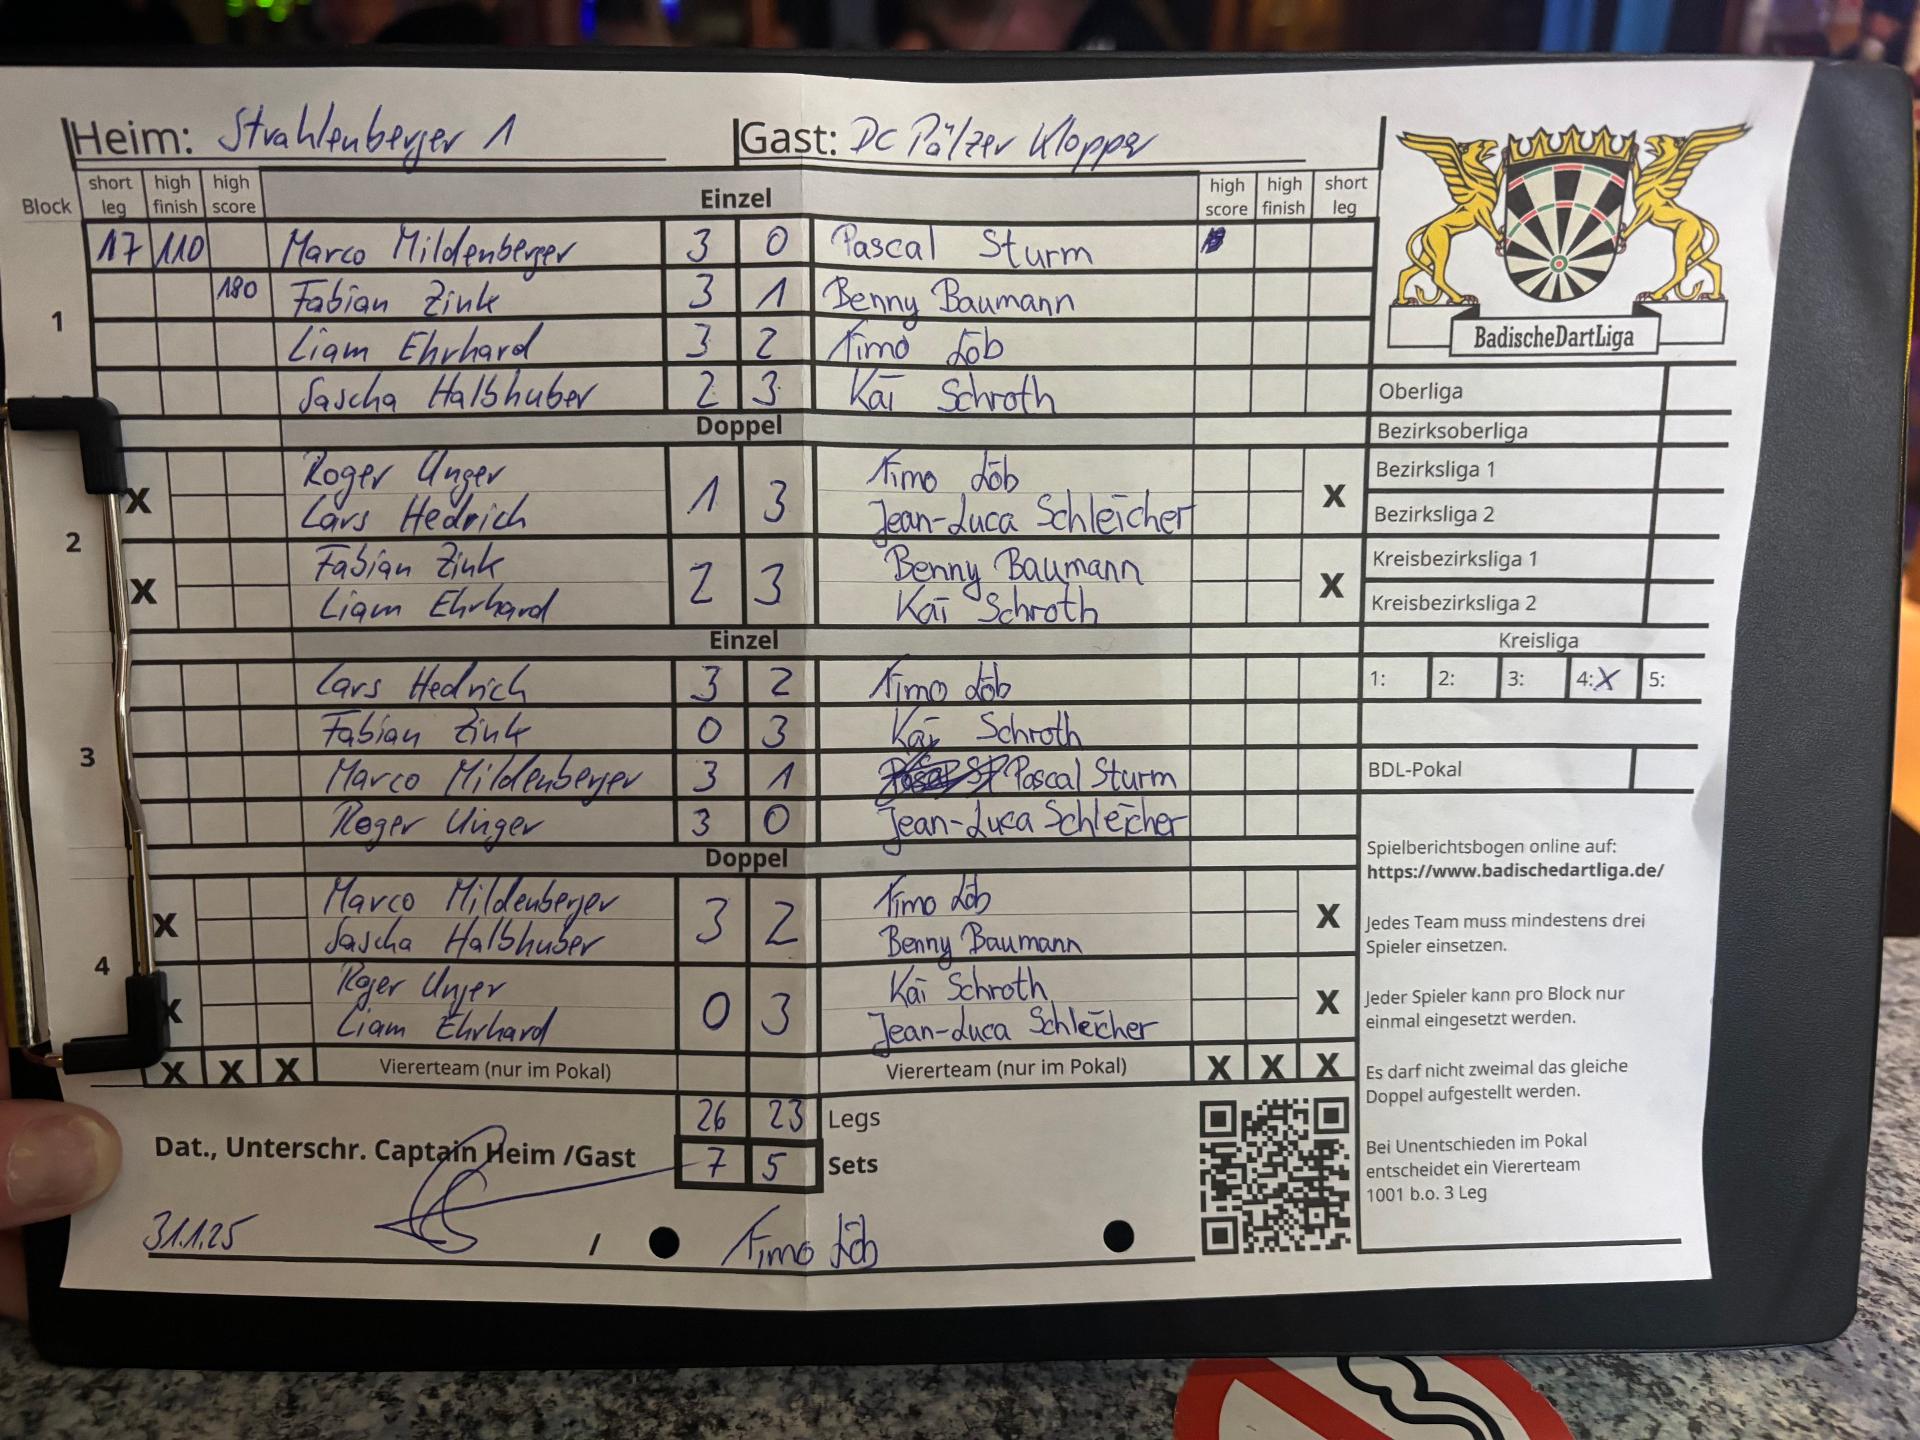 Heim: Strahlenberger 1 Gast: DC Pälzer Klopper
Block short leg high finish high score Einzel high score high finish short leg
1
17 110 Marco Mildenberger 3 0 Pascal Sturm
180 Fabian Zink 3 1 Benny Baumann
Liam Ehrhard 3 2 Timo Löb
Sascha Halbhuber 2 3 Kai Schroth
Doppel
2
X Roger Unger 1 3 Timo Löb X
Lars Hedrich Jean-Luca Schleicher
X Fabian Zink 2 3 Benny Baumann X
Liam Ehrhard Kai Schroth
Einzel
3
Lars Hedrich 3 2 Timo Löb
Fabian Zink 0 3 Kai Schroth
Marco Mildenberger 3 1 Pascal Sturm
Roger Unger 3 0 Jean-Luca Schleicher
Doppel
4
X Marco Mildenberger 3 2 Timo Löb X
Sascha Halbhuber Benny Baumann
X Roger Unger 0 3 Kai Schroth X
Liam Ehrhard Jean-Luca Schleicher
X X X Viererteam (nur im Pokal) Viererteam (nur im Pokal) X X X
26 23 Legs
7 5 Sets
Dat., Unterschr. Captain Heim /Gast
31.1.25 / Timo Löb
BadischeDartLiga
Oberliga
Bezirksoberliga
Bezirksliga 1
Bezirksliga 2
Kreisbezirksliga 1
Kreisbezirksliga 2
Kreisliga
1: 2: 3: 4:X 5:
BDL-Pokal
Spielberichtsbogen online auf:
https://www.badischedartliga.de/
Jedes Team muss mindestens drei
Spieler einsetzen.
Jeder Spieler kann pro Block nur
einmal eingesetzt werden.
Es darf nicht zweimal das gleiche
Doppel aufgestellt werden.
Bei Unentschieden im Pokal
entscheidet ein Viererteam
1001 b.o. 3 Leg